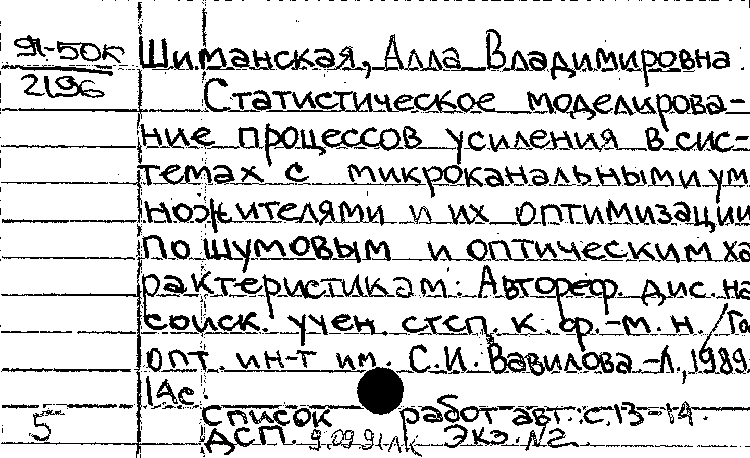 Я-50К Шиманская, Алла Владимировна.
2196 Статистическое моделирова-
ние процессов усиления в сис-
темах с микроканальными ум
ножителями и их оптимизации
по шумовым и оптическим ха
рактеристикам: Автореф. дис. на
соиск. учен. степ. к. ф.-м. н. / Го
опт. ин-т им. С.И. Вавилова -Л., 1989
14с.
Список работ авт.: с.13-14.
5 ДСП. 9.09.91 ЛК Экз. N2.